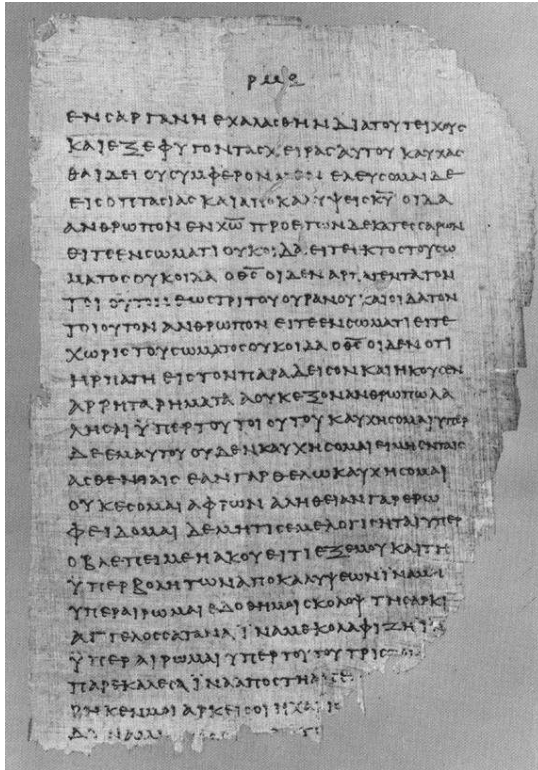 ΡΜΕ
ΕΝ ΣΑΡΓΑΝΗ ΕΧΑΛΑΣΘΗΝ ΔΙΑ ΤΟΥ ΤΕΙΧΟΥΣ
ΚΑΙ ΕΞΕΦΥΓΟΝ ΤΑΣ ΧΕΙΡΑΣ ΑΥΤΟΥ ΚΑΥΧΑΣ
ΘΑΙ ΔΕΙ ΟΥ ΣΥΜΦΕΡΟΝ ΕΛΕΥΣΟΜΑΙ ΔΕ
ΕΙΣ ΟΠΤΑΣΙΑΣ ΚΑΙ ΑΠΟΚΑΛΥΨΕΙΣ Κ̅Υ̅ ΟΙΔΑ
ΑΝΘΡΩΠΟΝ ΕΝ Χ̅Ω̅ ΠΡΟ ΕΤΩΝ ΔΕΚΑΤΕΣΣΑΡΩΝ
ΕΙΤΕ ΕΝ ΣΩΜΑΤΙ ΟΥΚ ΟΙΔΑ ΕΙΤΕ ΕΚΤΟΣ ΤΟΥ ΣΩ
ΜΑΤΟΣ ΟΥΚ ΟΙΔΑ Ο Θ̅Σ̅ ΟΙΔΕΝ ΑΡΠΑΓΕΝΤΑ ΤΟΝ
ΤΟΙΟΥΤΟΝ ΕΩΣ ΤΡΙΤΟΥ ΟΥΡΑΝΟΥ ΚΑΙ ΟΙΔΑ ΤΟΝ
ΤΟΙΟΥΤΟΝ ΑΝΘΡΩΠΟΝ ΕΙΤΕ ΕΝ ΣΩΜΑΤΙ ΕΙΤΕ
ΧΩΡΙΣ ΤΟΥ ΣΩΜΑΤΟΣ ΟΥΚ ΟΙΔΑ Ο Θ̅Σ̅ ΟΙΔΕΝ ΟΤΙ
ΗΡΠΑΓΗ ΕΙΣ ΤΟΝ ΠΑΡΑΔΕΙΣΟΝ ΚΑΙ ΗΚΟΥΣΕΝ
ΑΡΡΗΤΑ ΡΗΜΑΤΑ Α ΟΥΚ ΕΞΟΝ ΑΝΘΡΩΠΩ ΛΑ
ΛΗΣΑΙ ΫΠΕΡ ΤΟΥ ΤΟΙΟΥΤΟΥ ΚΑΥΧΗΣΟΜΑΙ ΥΠΕΡ
ΔΕ ΕΜΑΥΤΟΥ ΟΥΔΕΝ ΚΑΥΧΗΣΟΜΑΙ ΕΙ ΜΗ ΕΝ ΤΑΙΣ
ΑΣΘΕΝΕΙΑΙΣ ΕΑΝ ΓΑΡ ΘΕΛΩ ΚΑΥΧΗΣΟΜΑΙ
ΟΥΚ ΕΣΟΜΑΙ ΑΦΡΩΝ ΑΛΗΘΕΙΑΝ ΓΑΡ ΕΡΩ
ΦΕΙΔΟΜΑΙ ΔΕ ΜΗ ΤΙΣ ΕΜΕ ΛΟΓΙΣΗΤΑΙ ΥΠΕΡ
Ο ΒΛΕΠΕΙ ΜΕ Η ΑΚΟΥΕΙ ΤΙ ΕΞ ΕΜΟΥ ΚΑΙ ΤΗ
ΫΠΕΡΒΟΛΗ ΤΩΝ ΑΠΟΚΑΛΥΨΕΩΝ ΪΝΑ ΜΗ
ΥΠΕΡΑΙΡΩΜΑΙ ΕΔΟΘΗ ΜΟΙ ΣΚΟΛΟΨ ΤΗ ΣΑΡΚΙ
ΑΓΓΕΛΟΣ ΣΑΤΑΝΑ ΪΝΑ ΜΕ ΚΟΛΑΦΙΖΗ ΪΝΑ
ΫΠΕΡΑΙΡΩΜΑΙ ΥΠΕΡ ΤΟΥΤΟΥ ΤΡΙΣ
ΠΑΡΕΚΑΛΕΣΑ ΪΝΑ ΑΠΟΣΤΗ
ΡΗΚΕΝ ΜΟΙ ΑΡΚΕΙ ΣΟΙ Η ΧΑΡΙΣ
ΔΥΝΑΜΙΣ